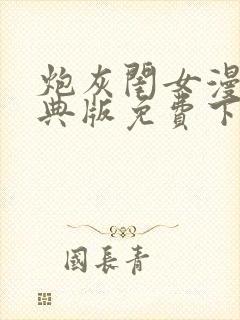 炮灰閨女漫
典版免費下
國長青